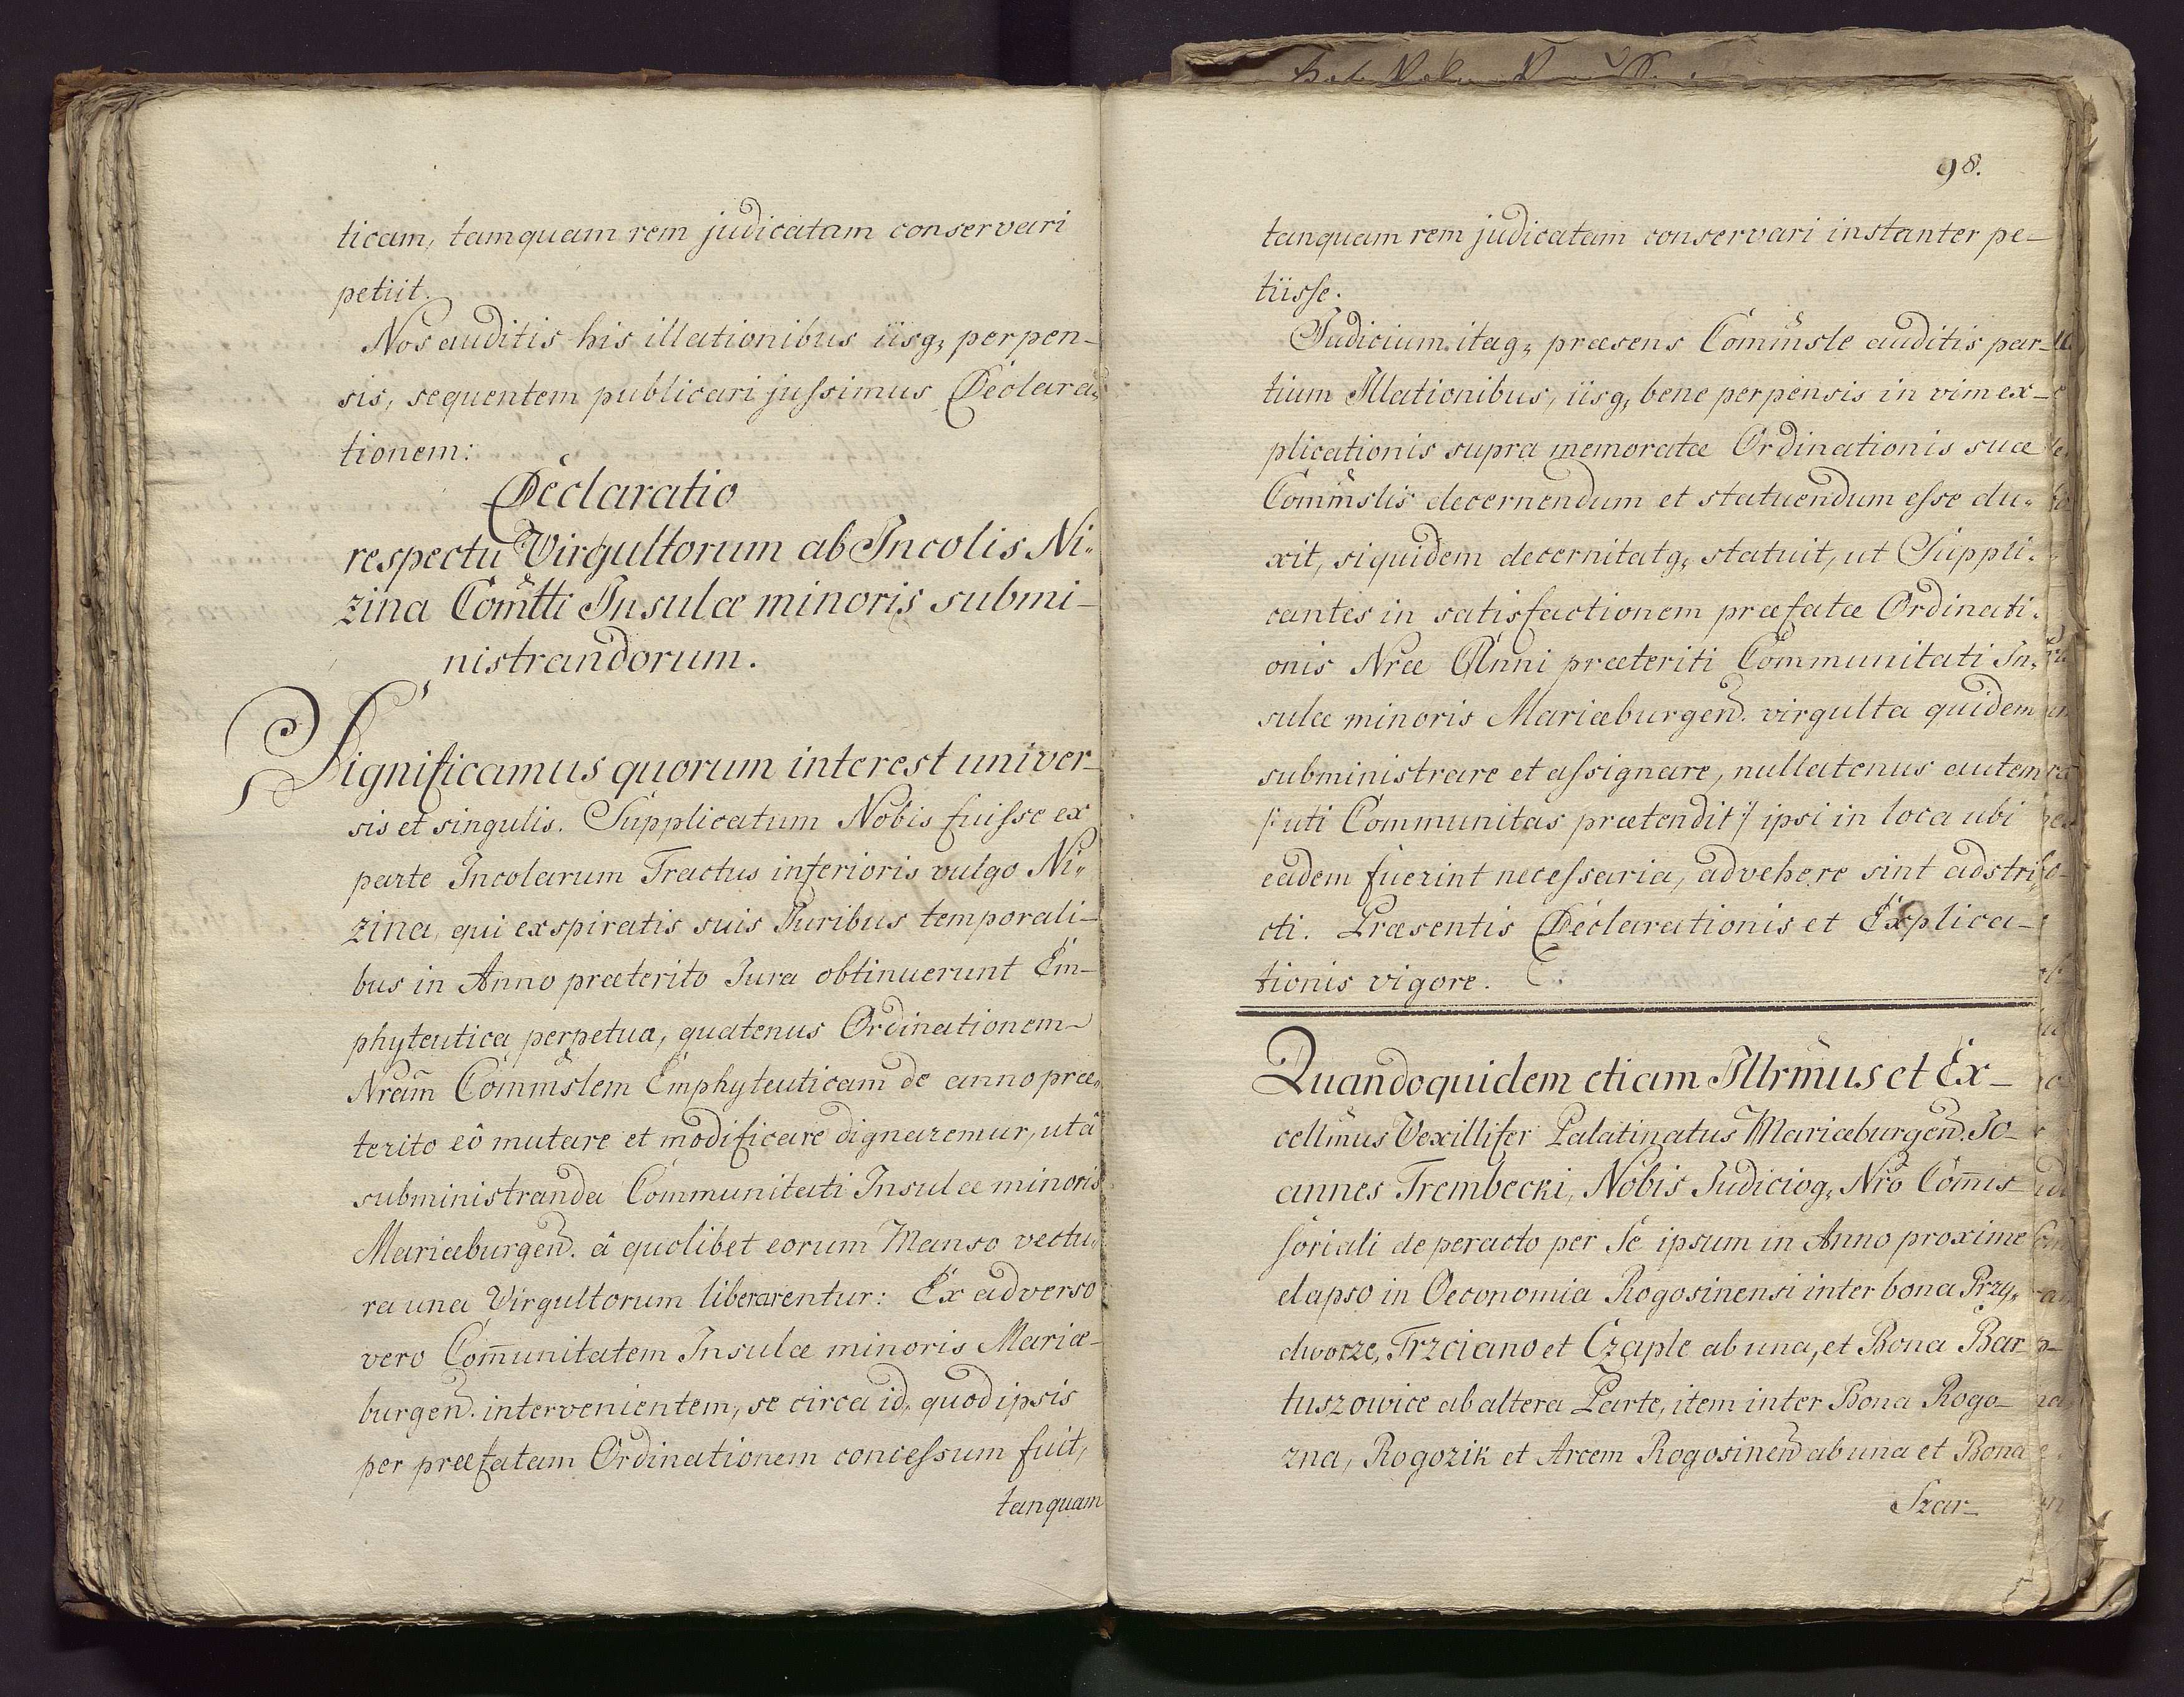 ticam, tamquam rem judicatam conservari
petiit.
Nos auditis his illationibus iisq; perpen-
sis, sequentem publicari jussimus Declara-
tionem:
Declaratio
respectu Virgultorum ab Incolis Ni-
zina Comtti Insulæ minoris submi-
nistrandorum.
Significamus quorum interest univer-
sis et singulis. Supplicatum Nobis fuisse ex
parte Incolarum Tractus inferioris vulgo Ni-
zina, qui exspiratis suis Juribus temporali-
bus in Anno præterito Jura obtinuerunt Em-
phyteutica perpetua, quatenus Ordinationem
Nram Commislem Emphyteuticam de anno præ-
terito eô mutare et modificare dignaremur, ut â
subministranda Communitati Insulæ minoris
Mariæburgen. â quolibet eorum Manso vectu-
ra una Virgultorum liberarentur: Ex adverso
vero Com̄unitatem Insulæ minoris Mariæ-
burgen. intervenientem, se circa id, quod ipsis
per præfatam Ordinationem concessum fuit,
tanquam
98.
tanquam rem judicatam conservari instanter pe-
tiisse.
Judicium itaq; præsens Commisle auditis par-
tium Illationibus, iisq; bene perpensis in vim ex-
plicationis supra memoratæ Ordinationis suæ
Commislis decernendum et statuendum esse du-
xit, siquidem decernit atq; statuit, ut Suppli-
cantes in satisfactionem præfatæ Ordinati-
onis Nræ Anni præteriti Communitati In-
sulæ minoris Mariæburgen. virgulta quidem
subministrare et assignare, nullatenus autem
/: uti Communitas prætendit :/ ipsi in loca ubi
eadem fuerint necessaria, advehere sint adstri-
cti. Præsentis Declarationis et Explica-
tionis vigore.
Quandoquidem etiam Illrmus et Ex-
cellmus Vexillifer Palatinatus Mariæburgen. Jo-
annes Trembecki, Nobis Judicioq; Nro Com̄is-
soriali de peracto per Se ipsum in Anno proxime
elapso in Oeconomia Rogosinensi inter bona Przy-
dworze, Trzciano et Czaple ab una, et Bona Bar-
tuszowice ab altera Parte, item inter Bona Rogo-
zna, Rogozik et Arcem Rogosinen ab una et Bona
Szar-